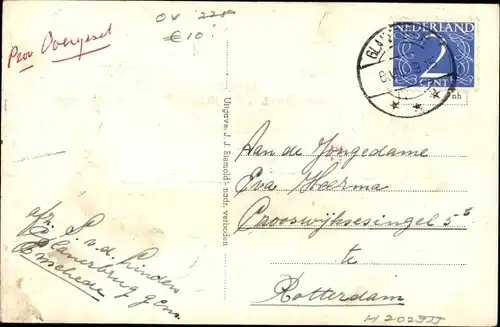 Prov Overijssel
OV 225
€10
NEDERLAND
2
CENT
Uitgave: J. J. Eiemold - nadr. verboden
Aan de Jongedame
Eva Heerma
Crooswijksesingel 5b
te
Rotterdam
afz. S. v.d. Linden
Glanerbrug gem.
Enschede
H 20295